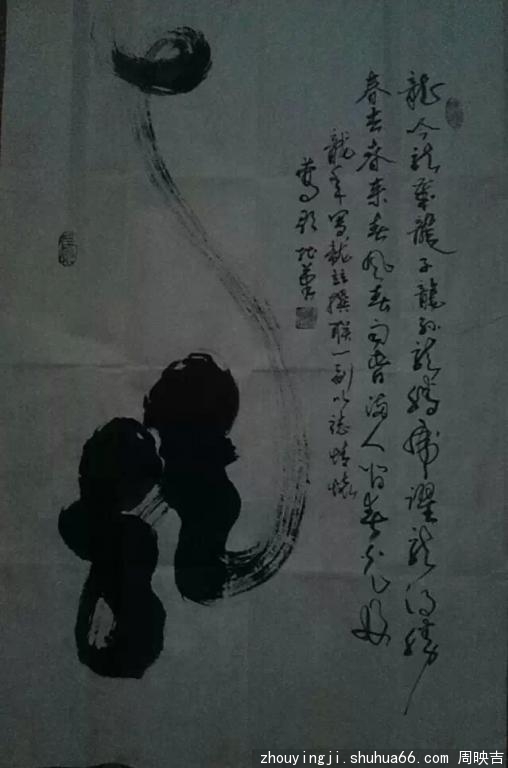 龍今龍年龍子龍孫龍騰虎躍龍得勝
春去春来春風春雨春滿人間春光好
龍年寫龍並撰联一副以誌情懷
zhouyingji.shuhua66.com 周映吉